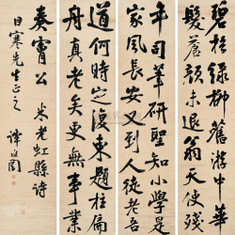 碧榆綠柳舊游中華
髮蒼顏未退翁天使殘
年司筆研聖知小學是
家風長安又到人徒老吾
道何時定復東題柱扁
舟真老矣更無事業
奏膚公 米老虹縣詩
寒先生正之
譚延闓